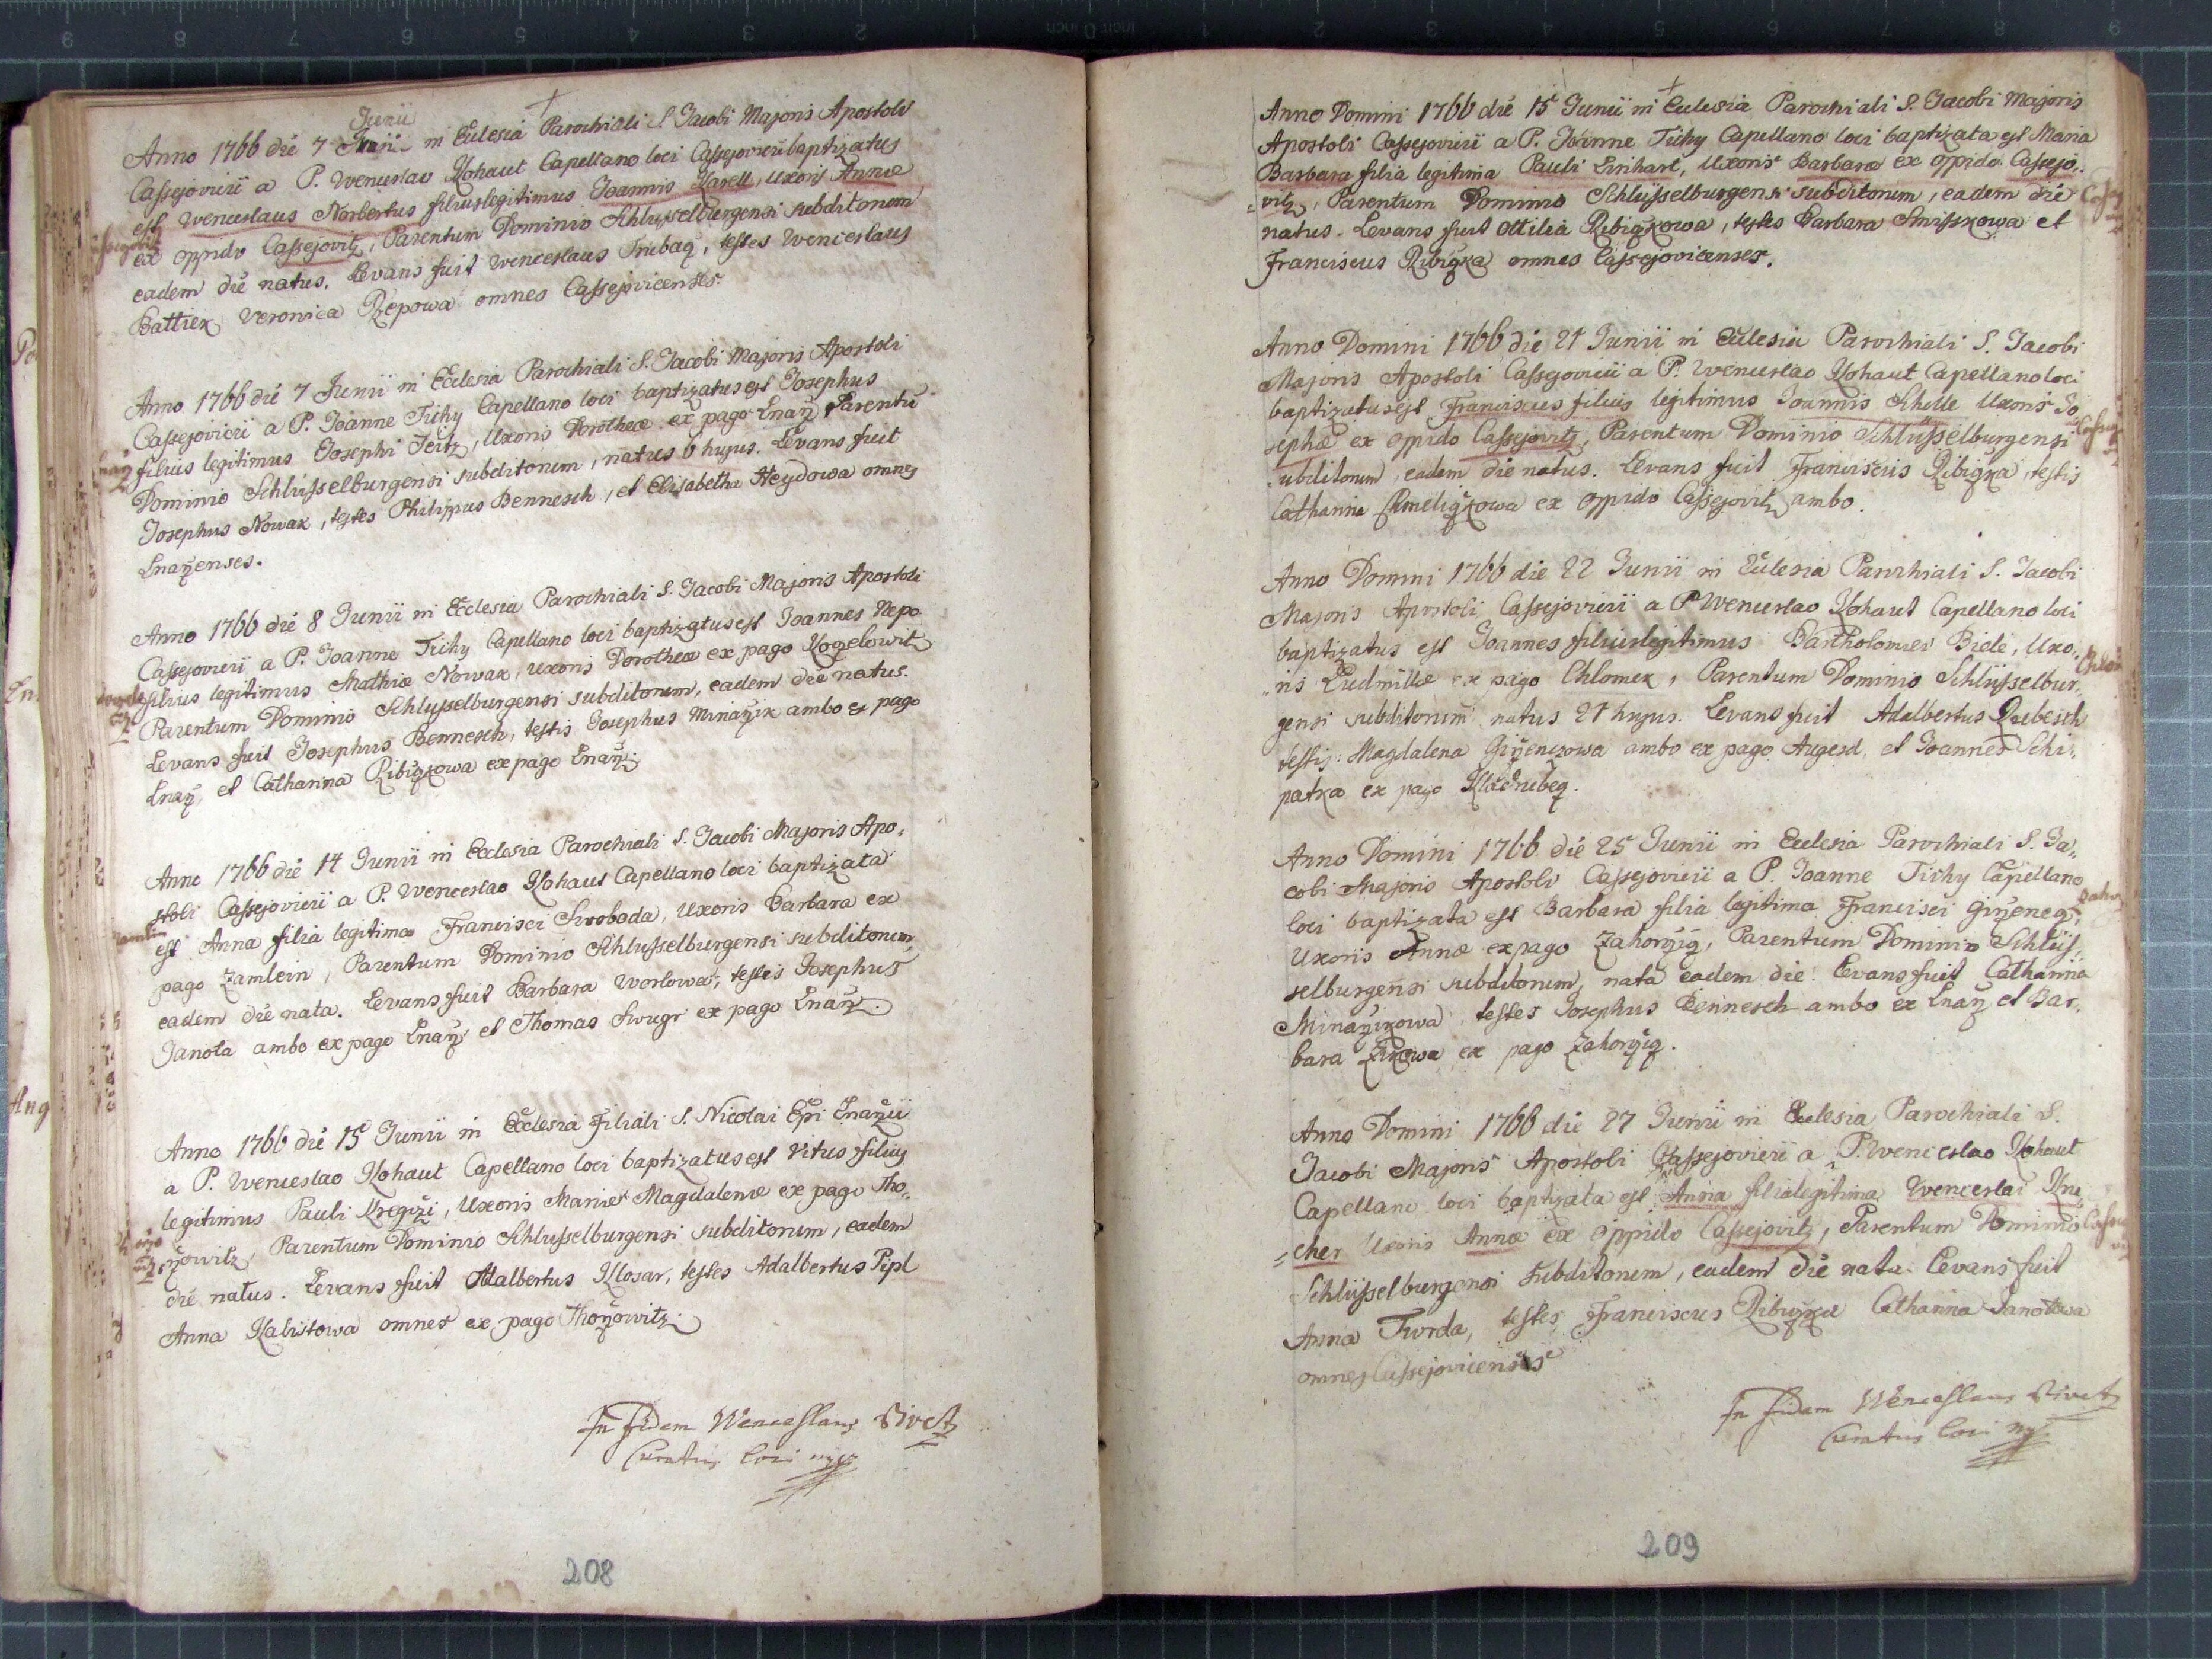 Junii
Anno 1766 die 7 in Ecclesia Parochiali S. Jacobi Majoris Apostoli
Cassejovicii a P. Wenceslao Kohaut Capellano loci Cassejovicii baptizatus
est Wenceslaus Norbertus filius legitimus Joannis Karell, Uxoris Annæ
ex oppido Cassejovitz, Parentum Dominio Schlusselburgensi subditorum
eadem die natus. Levans fuit Wenceslaus Trubaq, testes Wenceslaus
Battiek Veronica Rzepowa omnes Cassejovicenses.
Anno 1766 die 7 Junii in Ecclesia Parochiali S. Jacobi Majoris Apostoli
Cassejovicii a P. Joanne Tichy Capellano loci baptizatus est Josephus
filius legitimus Josephi Jeitz, Uxoris Dorotheæ ex pago Lnarz Parentu
Dominio Schlüsselburgensi subditorum, natus 6 hujus. Levans fuit
Josephus Nowak, testes Philippus Bennesch, et Elisabetha Heydowa omnes
Lnarzenses.
Anno 1766 die 8 Junii in Ecclesia Parochiali S. Jacobi Majoris Apostoli
Cassejovicii a P. Joanne Tichy Capellano loci baptizatus est Joannes Nepo
filius legitimus Mathiæ Nowak, Uxoris Dorotheæ ex pago Kozelowitz
Parentum Dominio Schlusselburgensi subditorum, eadem die natus.
Levans fuit Josephus Bennesch, testis Josephus Minarzik ambo ex pago
Lnarz, et Catharina Ribiczkowa ex pago Lnarz.
Anno 1766 die 14 Junii in Ecclesia Parochiali S. Jacobi Majoris Apo,,
stoli Cassejovicii a P. Wenceslao Kohaut Capellano loci baptizata
est Anna filia legitima Francisci Swoboda, Uxoris Barbara ex
pago Zamlein, Parentum Dominio Schlusselburgensi subditorum,
eadem die nata. Levans fuit Barbara Worlowa, testes Josephus
Janota ambo ex pago Lnarz et Thomas Swugr ex pago Lnarz.
Anno 1766 die 15 Junii in Ecclesia Filiali S. Nicolai Epi Lnarzii
a P. Wenceslao Kohaut Capellano loci baptizatus est Vitus filius
legitimus Pauli Kregczi, Uxoris Mariæ Magdalenæ ex pago Tho,,
rzowitz, Parentum Dominio Schlusselburgensi subditorum, eadem
die natus. Levans fuit Adalbertus Klosar, testes Adalbertus Pipl
Anna Kalistowa omnes ex pago Thorzowitz.
In fidem Wenceslaus Sivetz
Curatus loci mpp
208
Anno Domini 1766 die 15 Junii in Ecclesia Parochiali S. Jacobi Majoris
Apostoli Cassejovicii a P. Joanne Tichy Capellano loci baptizata est Maria
Barbara filia legitima Pauli Linhart, Uxoris Barbaræ ex oppido Cassejo,,
vitz, Parentum Dominio Schlüsselburgensi subditorum, eadem die
natus. Levans fuit Ottilia Ribiczkowa, testes Barbara Smisskowa et
Franciscus Ribiczka omnes Cassejovicenses.
Anno Domini 1766 die 21 Junii in Ecclesia Parochiali S. Jacobi
Majoris Apostoli Cassejovicii a P. Wenceslao Kohaut Capellano loci
baptizatus est Franciscus filius legitimus Joannis Schelle Uxoris Jo
sephæ ex oppido Cassejovitz, Parentum Dominio Schlusselburgensi
subditorum, eadem die natus. Levans fuit Franciscus Ribiczka, testis
Catharina ex oppido Cassejovitz ambo.
Anno Domini 1766 die 22 Junii in Ecclesia Parochiali S. Jacobi
Majoris Apostoli Cassejovicii a P Wenceslao Kohaut Capellano loci
baptizatus est Joannes filius legitimus Bartholomei Biele, Uxo,,
ris Ludmillæ ex pago Chlomek, Parentum Dominio Schlüsselbur,,
gensi subditorum natus 21 hujus. Levans fuit Adalbertus
testis: Magdalena Girzenczowa ambo ex pago Augezd, et Joannes Schi,,
patka ex pago Kladrubeq.
Anno Domini 1766 die 25 Junii in Ecclesia Parochiali S. Ja,,
cobi Majoris Apostoli Cassejovicii a P. Joanne Tichy Capellano
loci baptizata est Barbara filia legitima Francisci Girzeneq,
Uxoris Annæ ex pago Zahorziq, Parentum Dominio Schlüs,,
selburgensi subditorum, nata eadem die. Levans fuit Catharina
Minarzikowa, testes Josephus Bennesch ambo ex Lnarz et Bar,,
bara Zikowa ex pago Zahorziq.
Anno Domini 1766 die 27 Junii in Ecclesia Parochiali S.
Jacobi Majoris Apostoli Cassejovicii a P. Wenceslao Kohaut
Capellano loci baptizata est Anna filia legitima Wenceslai Kne
=cher Uxoris Annæ ex oppido Cassejovitz, Parentum Dominio
Schlüsselburgensi subditorum, eadem die nata. Levans fuit
Anna Twrda, testes Franciscus Ribiczka Catharina Janotowa
omnes Cassejovicenses
In fidem Wenceslaus Sivetz
Curatus loci mp.
209